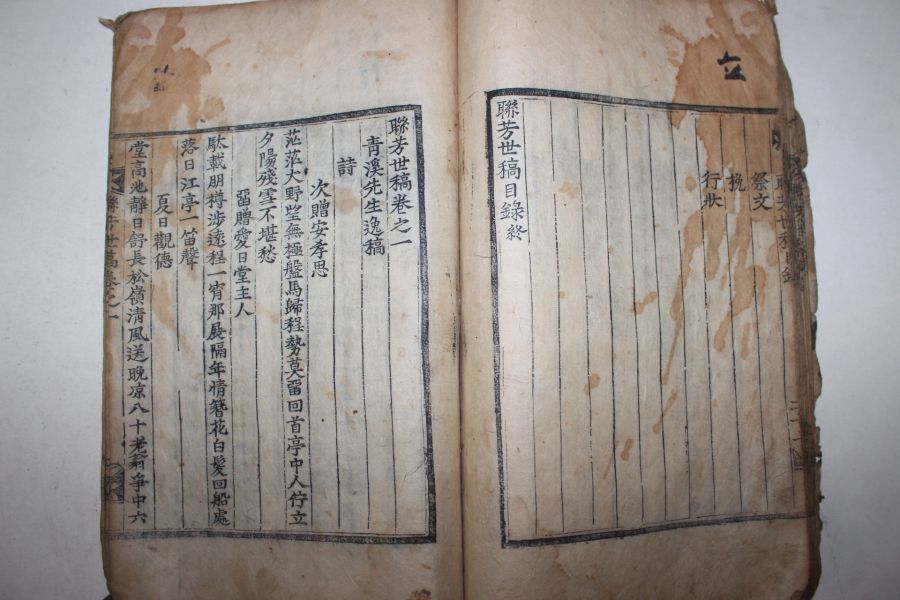 祭文
挽
行狀
聯芳世稿目錄終
聯芳世稿卷之一
青溪先生逸稿
詩
次贈安孝思
茫茫大野望無極盤馬歸程勢莫留回首亭中人佇立
夕陽殘雪不堪愁
留贈愛日堂主人
駄載朋樽涉遠程一宵那展隔年情簪花白髮回船處
落日江亭一笛聲
夏日觀德
堂高池靜日舒長松嶺清風送晚凉八十老翁爭中六